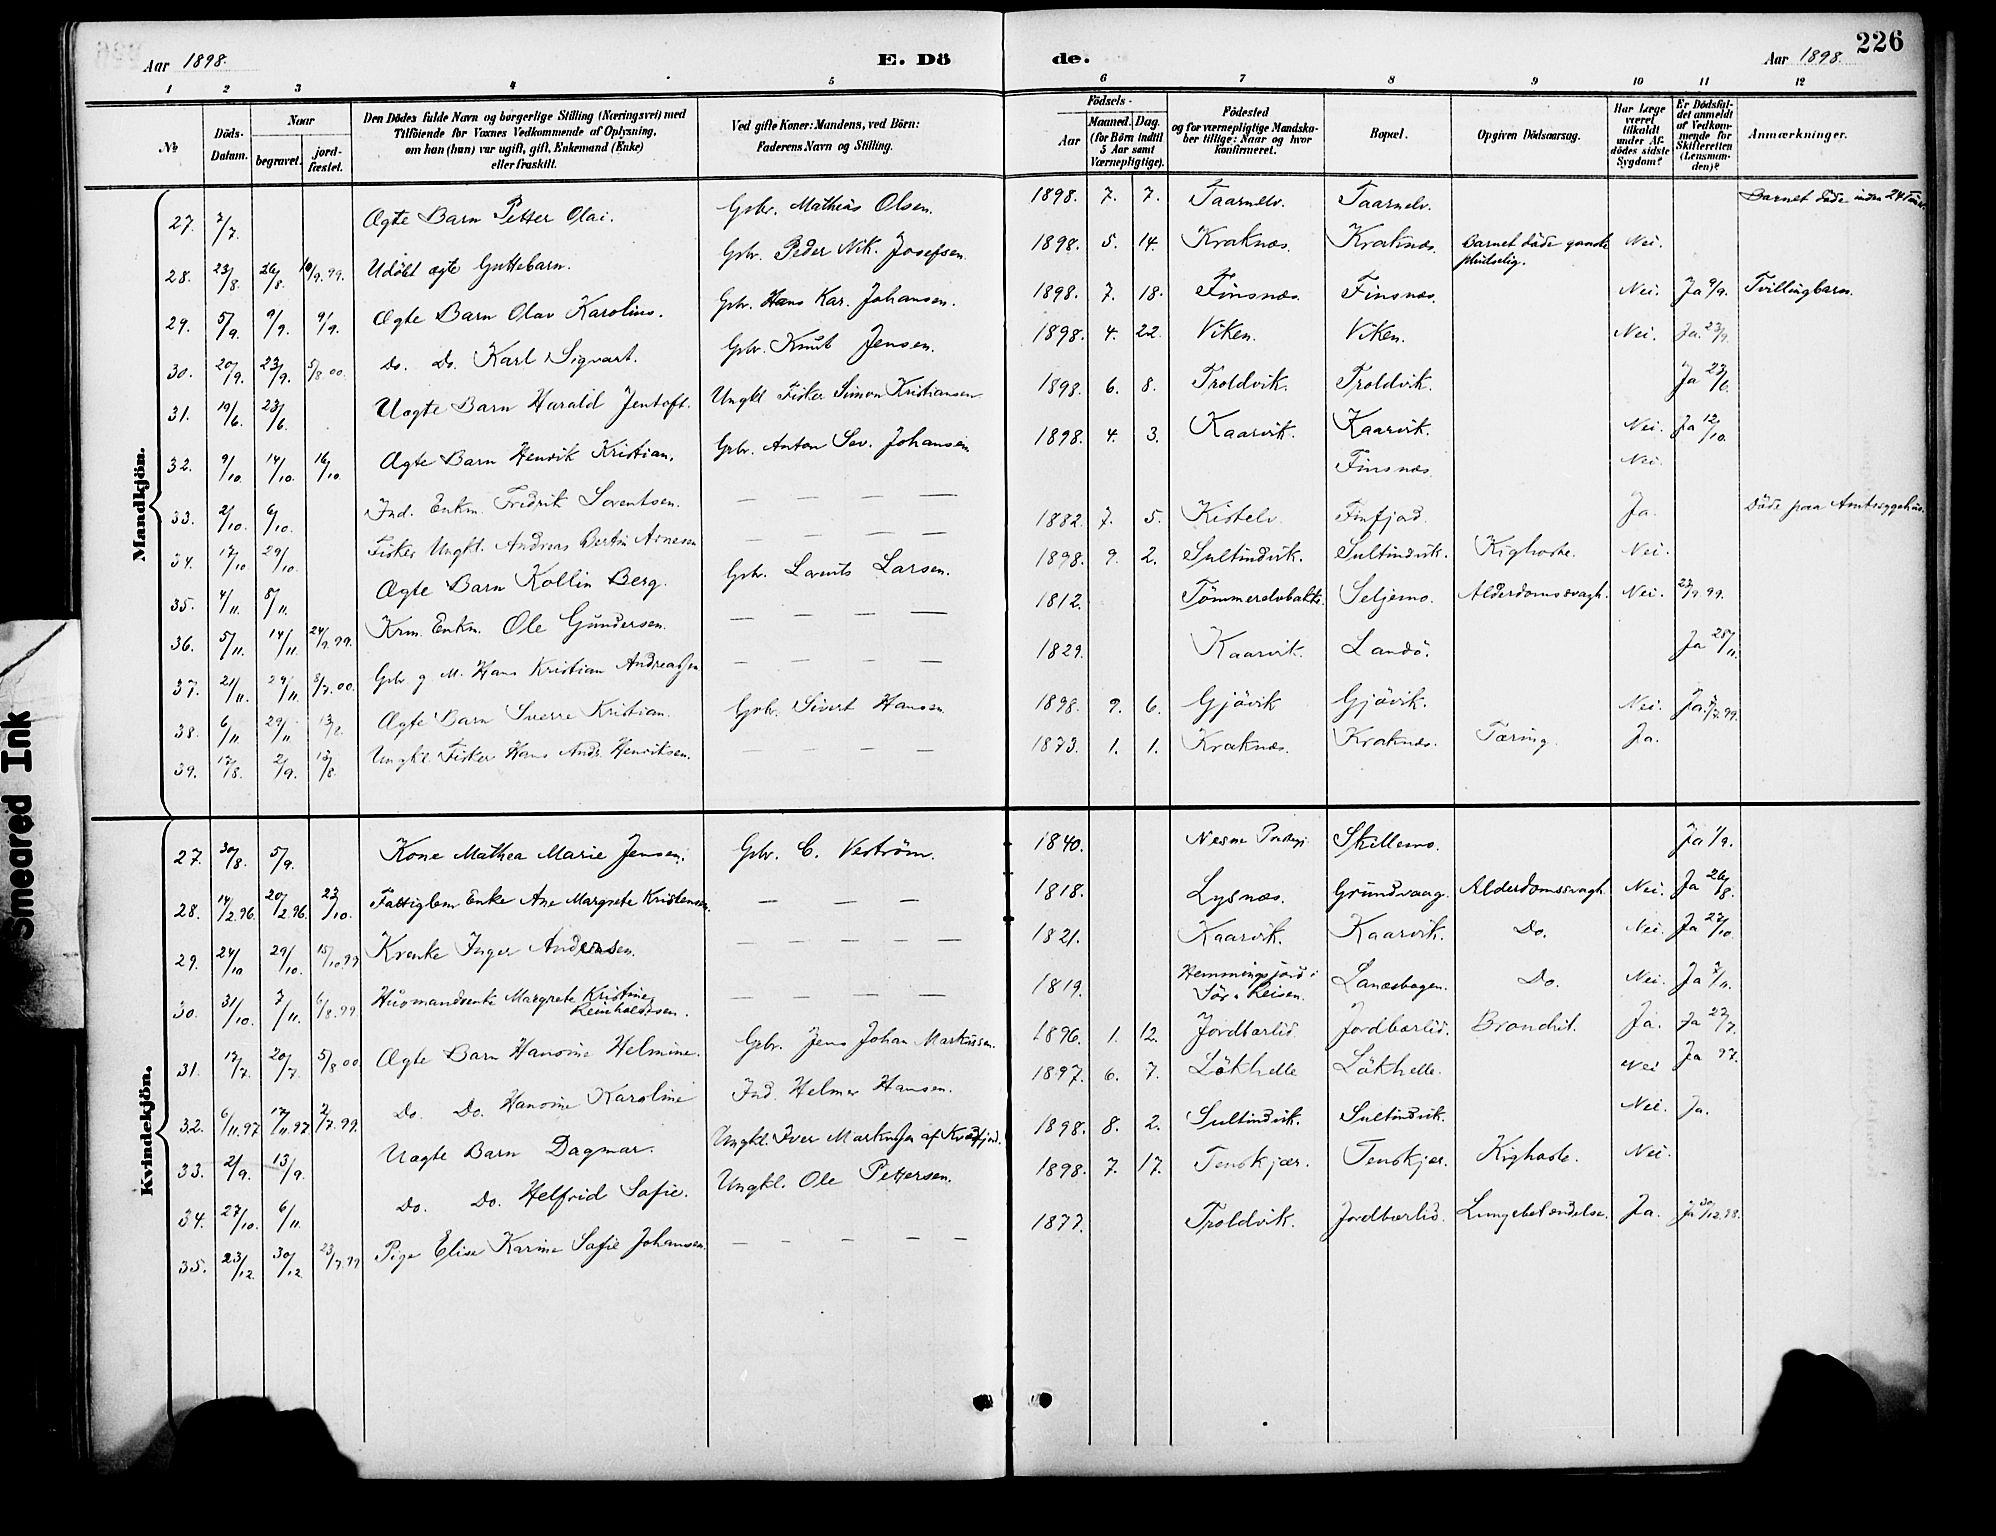 226
Aar 1898.
E. Dö
de.
Aar 1898.
1 2 3 4 5 6 7 8 9 10 11 12
No
Döds-
Datum.
Naar
begravet.
jord-
fæstet.
Den Dödes fulde Navn og borgerlige Stilling (Næringsvei) med
Tilföiende for Voxnes Vedkommende af Oplysning,
om han (hun) var ugift, gift, Enkemand (Enke)
eller fraskilt.
Ved gifte Koner: Mandens, ved Börn:
Faderens Navn og Stilling.
Födsels-
Aar
Maaned. Dag.
(for Börn indtil
5 Aar samt
Værnepligtige).
Födested
og for værnepligtige Mandska-
ber tillige: Naar og hvor
konfirmeret.
Bopæl.
Opgiven Dödsaarsag.
Har Læge
været
tilkaldt
under Af-
dödes sidste
Sygdom?
Er Dödsfal-
det anmeldt
af Vedkom-
mende for
Skifteretten
(Lensman-
den)?
Anmærkninger.
Mandkjön.
27. 7/7. Ægte Barn Petter Olai. Gbr. Mathias Olsen. 1898. 7. 7. Taarnelv. Taarnelv. Barnet døde inden 24 Timer.
28. 23/8. 26/8. 10/9.99. Udöbt ægte Guttebarn. Gbr. Peder Nik. Josefsen. 1898. 5. 14. Kraknæs. Kraknæs. Barnet døde ganske pludselig. Nei.
29. 5/9. 9/9. 9/9. Ægte Barn Olav Karolius. Gbr. Hans Kar. Johansen. 1898. 7. 18. Finsnæs. Finsnæs. Nei. Ja 9/9. Tvillingbarn.
30. 20/9. 23/9. 5/8.00. Do. Do. Karl Sigvart. Gbr. Knut Jensen. 1898. 4. 22. Viken. Viken. Nei. Ja. 23/9.
31. 19/6. 23/6. Uægte Barn Harald Jentoft. Ungkl Fisker Simon Kristiansen 1898. 6. 8. Troldvik. Troldvik. Ja 23/6.
32. 9/10. 14/10. 16/10. Ægte Barn Henrik Kristian. Gbr. Anton Sev. Johansen 1898. 4. 3. Kaarvik. Kaarvik. Nei. Ja 12/10.
33. 2/10. 6/10. Ind. Enkm. Fredrik Lorentsen. — — — — Finsnæs. Nei.
34. 17/10. 29/10. Fisker Ungkl. Andreas Bertin Arnesen — — — — 1882. 7. 5. Kistelv. Finfjord. Ja. Døde paa Amtssygehus.
35. 4/11. 8/11. Ægte Barn Kollin Berg. Gbr. Lorents Larsen. 1898. 9. 2. Sultindvik. Sultindvik. Kighoste. Nei.
36. 5/11. 14/11. 24/9.99. Krm. Enkm. Ole Gundersen. — — — — 1812. Tömmerelvbakke. Seljemo. Alderdomssvagh. Nei. 27/9 99.
37. 21/11. 29/11. 8/7.00. Gbr g M. Hans Kristian Andreassen — — — — 1829. Kaarvik. Landö. Ja 25/11.
38. 6/11. 29/11 13/2. Ægte Barn Sverre Kristian. Gbr. Sivert Hansen. 1898. 9. 6. Gjövik Gjövik. Nei.
39. 17/8. 2/9. 13/8. Ungkl. Fisker Hans Andr. Henriksen. — — — — 1873. 1. 1. Kraknæs. Kraknæs. Tæring. Ja.
Kvindekjön.
27. 30/8. 5/9. Kone Mathea Marie Jensen. Gbr. C. Veström. 1840. Nesne Skellemo. Ja 1/9.
28. 14/2.96. 20/2.96. 23/10. Fattiglem Enke Ane Margrete Kristensen. — — — 1818. Lysnæs. Grundvaag. Alderdomssvagh. Nei. Ja 26/8.
29. 24/10 29/10. 15/10.99 Krenke Inger Andersen. — — — — 1821. Kaarvik. Kaarvik. Do. Nei. Ja 27/10.
30. 31/10. 7/11. 6/8.99 Husmandsenke Margrete Kristine Reinholdtsen. — — — — 1819. Hemmingsjord i Sör-Reisen. Lanesbogen. Do. Nei. Ja 7/11.
31. 17/7. 20/7. 5/8 00 Ægte Barn Hansine Helmine. Gbr. Jens Johan Markussen. 1896. 1. 12. Jordbærlid. Jordbærlid. Bronchit. Ja. Ja 23/7.
32. 6/11.97 17/11.97 2/7.99. Do. Do. Hansine Karoline Ind. Helmer Hansen. 1897. 6. 7. Lökhelle Lökhelle. Nei Ja 97.
33. 2/9. 13/9. Uægte Barn Dagmar. Ungkl. Iver Markussen af Kvædfjord. 1898. 8. 2. Sultindvik. Sultindvik. Nei. Ja.
34. 27/10. 6/11. Do. Do. Helfrid Safie. Ungkl. Ole Pettersen. 1898. 7. 17. Tenskjær. Tenskjær. Kighoste. Nei.
35. 23/12. 30/12. 23/7.99 Pige Elise Karine Safie Johansen. — — — — — 1877. Troldvik. Jordbærlid. Lungebetændelse. Ja. Ja 30/12.98.
Smeared Ink